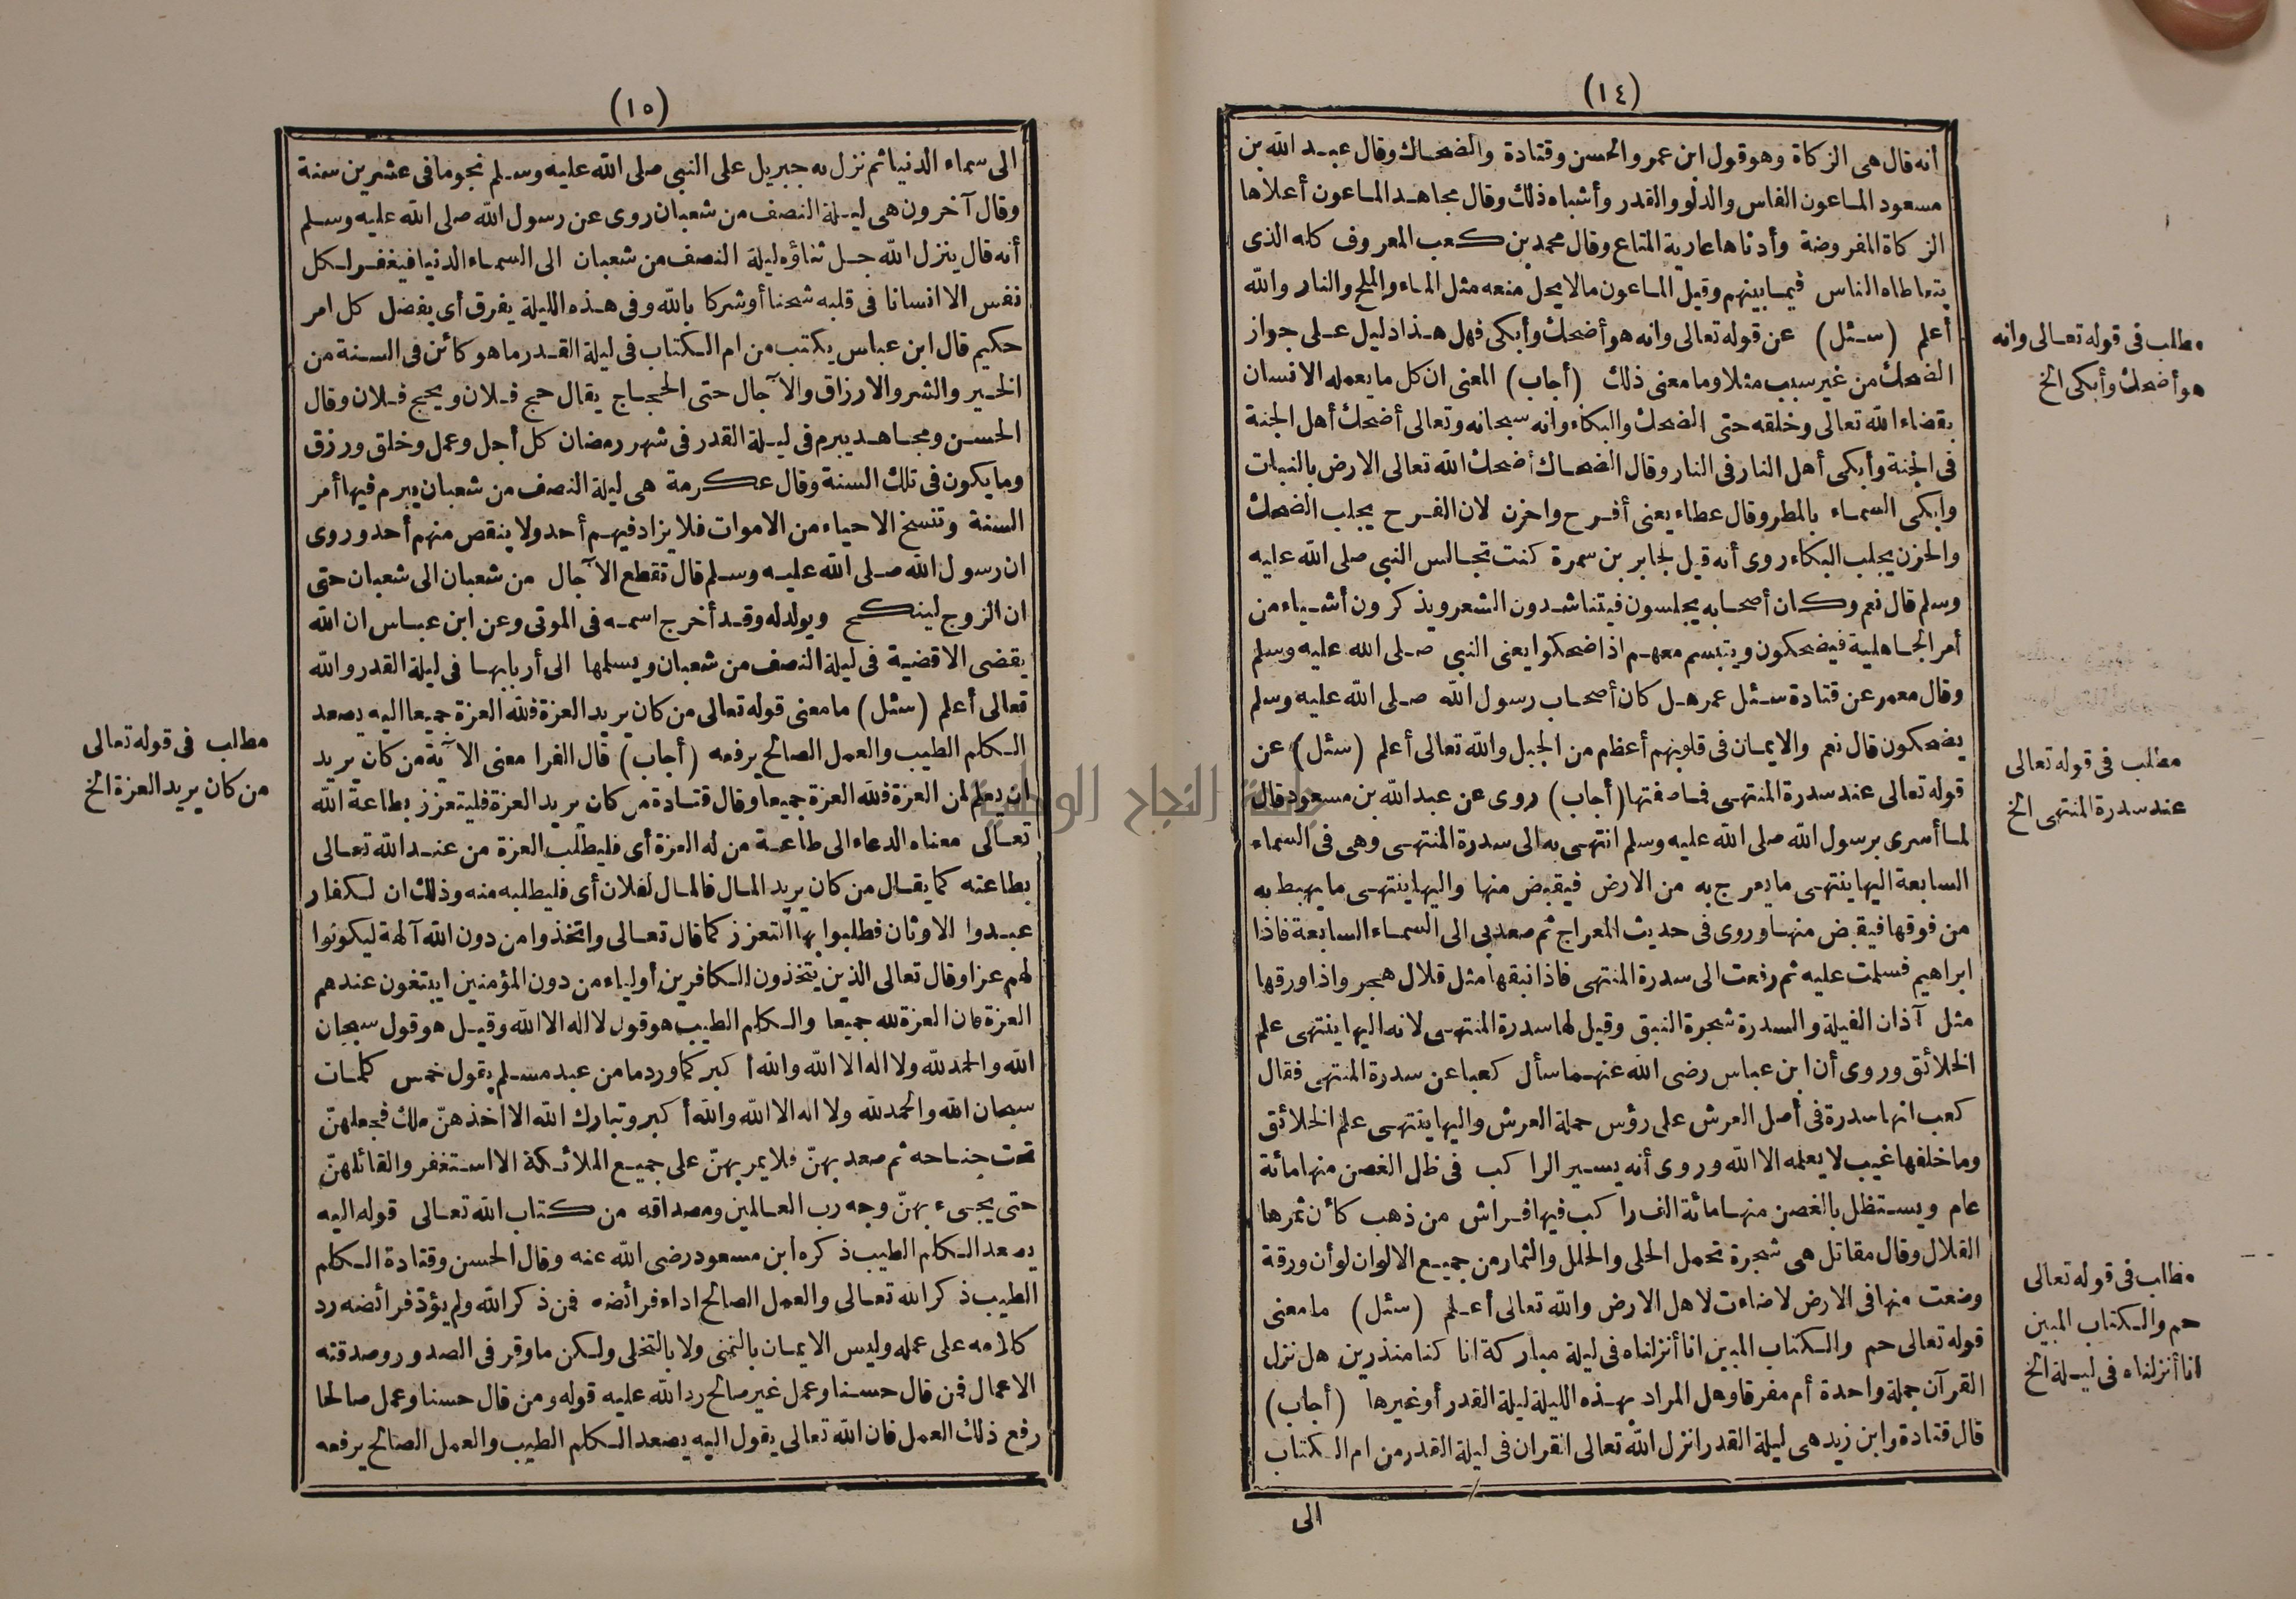 (١٤)
أنه قال هى الزكاة وهو قول ابن عمر والحسن وقتادة والضحاك وقال عبد الله بن
مسعود الماعون الفاس والدلو والقدر وأشباه ذلك وقال مجاهد الماعون أعلاها
الزكاة المفروضة وأدناها عارية المتاع وقال محمد بن كعب المعروف كله الذى
يتعاطاه الناس فيما بينهم وقيل الماعون مالا يحل منعه مثل الماء والملح والنار والله
أعلم (سئل) عن قوله تعالى وانه هو أضحك وأبكى فهل هذا دليل على جواز
الضحك من غير سبب مثلا وما معنى ذلك (أجاب) المعنى ان كل ما يعمله الانسان
بقضاء الله تعالى وخلقه حتى الضحك والبكاء وانه سبحانه وتعالى أضحك أهل الجنة
فى الجنة وأبكى أهل النار فى النار وقال الضحاك أضحك الله تعالى الارض بالنبات
وابكى السماء بالمطر وقال عطاء يعنى أفرح واحزن لان الفرح يجلب الضحك
والحزن يجلب البكاء روى أنه قيل لجابر بن سمرة كنت تجالس النبى صلى الله عليه
وسلم قال نعم وكان أصحابه يجلسون فيتناشدون الشعر ويذكرون أشياء من
أمر الجاهلية فيضحكون ويتبسم معهم اذا ضحكوا يعنى النبى صلى الله عليه وسلم
وقال معمر عن قتادة سئل عمر هل كان أصحاب رسول الله صلى الله عليه وسلم
يضحكون قال نعم والايمان فى قلوبهم أعظم من الجبل والله تعالى أعلم (سئل) عن
قوله تعالى عند سدرة المنتهى فما صفتها (أجاب) روى عن عبد الله بن مسعود قال
لما أسرى برسول الله صلى الله عليه وسلم انتهى به الى سدرة المنتهى وهى فى السماء
السابعة اليها ينتهى ما يعرج به من الارض فيقبض منها واليها ينتهى ما يهبط به
من فوقها فيقبض منها وروى فى حديث المعراج ثم صعد بى الى السماء السابعة فاذا
ابراهيم فسلمت عليه ثم رفعت الى سدرة المنتهى فاذا نبقها مثل قلال هجر واذا ورقها
مثل آذان الفيلة والسدرة شجرة النبق وقيل لها سدرة المنتهى لانه اليها ينتهى علم
الخلائق وروى أن ابن عباس رضى الله عنهما سأل كعبا عن سدرة المنتهى فقال
كعب انها سدرة فى أصل العرش على رؤس حملة العرش واليها ينتهى علم الخلائق
وما خلفها غيب لا يعلمه الا الله وروى أنه يسير الراكب فى ظل الغصن منها مائة
عام ويستظل بالغصن منها مائة الف راكب فيها فراش من ذهب كأن ثمرها
القلال وقال مقاتل هى شجرة تحمل الحلى والحلل والثمار من جميع الالوان لو أن ورقة
وضعت منها فى الارض لاضاءت لاهل الارض والله تعالى أعلم (سئل) ما معنى
قوله تعالى حم والكتاب المبين انا أنزلناه فى ليلة مباركة انا كنا منذرين هل نزل
القرآن جملة واحدة أم مفرقا وهل المراد بهذه الليلة ليلة القدر أو غيرها (أجاب)
قال قتادة وابن زيد هى ليلة القدر انزل الله تعالى القران فى ليلة القدر من ام الكتاب
الى
مطلب فى قوله تعالى وانه
هو أضحك وأبكى الخ
مطلب فى قوله تعالى
عند سدرة المنتهى الخ
مطلب فى قوله تعالى
حم والكتاب المبين
انا أنزلناه فى ليلة الخ
(١٥)
الى سماء الدنيا ثم نزل به جبريل على النبى صلى الله عليه وسلم نجوما فى عشرين سنة
وقال آخرون هى ليلة النصف من شعبان روى عن رسول الله صلى الله عليه وسلم
أنه قال ينزل الله جل ثناؤه ليلة النصف من شعبان الى السماء الدنيا فيغفر لكل
نفس الا انسانا فى قلبه شحنا أو شركا بالله وفى هذه الليلة يفرق أى يفضل كل امر
حكيم قال ابن عباس يكتب من ام الكتاب فى ليلة القدر ما هو كائن فى السنة من
الخير والشر والارزاق والآجال حتى الحجاج يقال حج فلان ويحج فلان وقال
الحسن ومجاهد يبرم فى ليلة القدر فى شهر رمضان كل أجل وعمل وخلق ورزق
وما يكون فى تلك السنة وقال عكرمة هى ليلة النصف من شعبان يبرم فيها أمر
السنة وتنسخ الاحياء من الاموات فلا يزاد فيهم أحد ولا ينقص منهم أحد وروى
ان رسول الله صلى الله عليه وسلم قال تقطع الآجال من شعبان الى شعبان حتى
ان الزوج لينكح ويولد له وقد أخرج اسمه فى الموتى وعن ابن عباس ان الله
يقضى الاقضية فى ليلة النصف من شعبان ويسلمها الى أربابها فى ليلة القدر والله
تعالى أعلم (سئل) ما معنى قوله تعالى من كان يريد العزة فلله العزة جميعا اليه يصعد
الكلم الطيب والعمل الصالح يرفعه (أجاب) قال الفرا معنى الآية من كان يريد
ان يعلم لمن العزة فلله العزة جميعا وقال قتادة من كان يريد العزة فليتعزز بطاعة الله
تعالى معناه الدعاء الى طاعة من له العزة أى فليطلب العزة من عند الله تعالى
بطاعته كما يقال من كان يريد المال فالمال لفلان أى فليطلبه منه وذلك ان لكفار
عبدوا الاوثان فطلبوا بها التعزز كما قال تعالى واتخذوا من دون الله آلهة ليكونوا
لهم عزا وقال تعالى الذين يتخذون الكافرين أولياء من دون المؤمنين ايبتغون عندهم
العزة فان العزة لله جميعا والكلم الطيب هو قول لا اله الا الله وقيل هو قول سبحان
الله والحمد لله ولا اله الا الله والله أكبر كما ورد ما من عبد مسلم يقول خمس كلمات
سبحان الله والحمد لله ولا اله الا الله والله أكبر وتبارك الله الا اخذهنّ ملك فجعلهنّ
تحت جناحه ثم صعد بهنّ فلا يمر بهنّ على جميع الملائكة الا استغفر والقائلهنّ
حتى يجىء بهنّ وجه رب العالمين ومصداقه من كتاب الله تعالى قوله اليه
يصعد الكلم الطيب ذكره ابن مسعود رضى الله عنه وقال الحسن وقتادة الكلم
الطيب ذكر الله تعالى والعمل الصالح اداء فرائضه فمن ذكر الله ولم يؤدّ فرائضه رد
كلامه على عمله وليس الايمان بالتمنى ولا بالتحلى ولكن ما وقر فى الصدور وصدقته
الاعمال فمن قال حسنا وعمل غير صالح رد الله عليه قوله ومن قال حسنا وعمل صالحا
رفع ذلك العمل فان الله تعالى يقول اليه يصعد الكلم الطيب والعمل الصالح يرفعه
مطلب فى قوله تعالى
من كان يريد العزة الخ
النجاح الوطنية